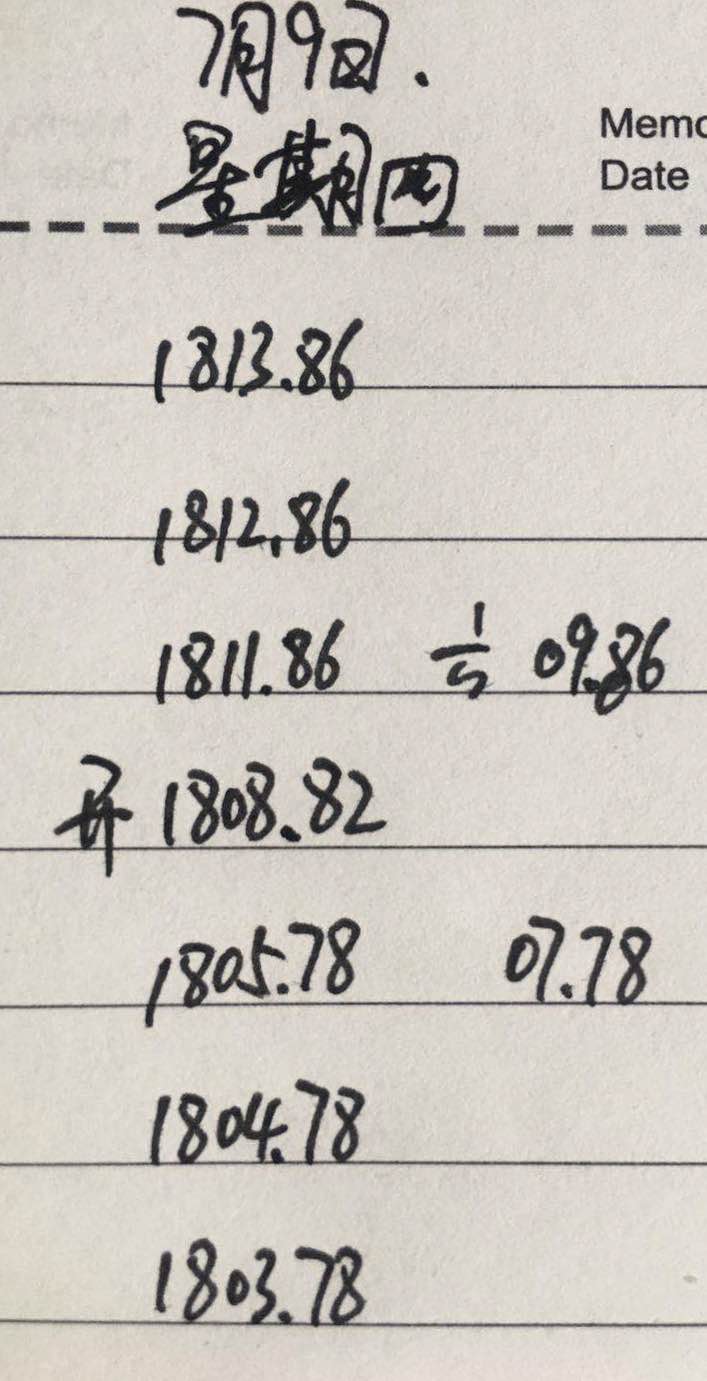 7月9日.
星期四
Memo
Date
1813.86
1812.86
1811.86 1/5 09.86
开 1808.82
1805.78 07.78
1804.78
1803.78